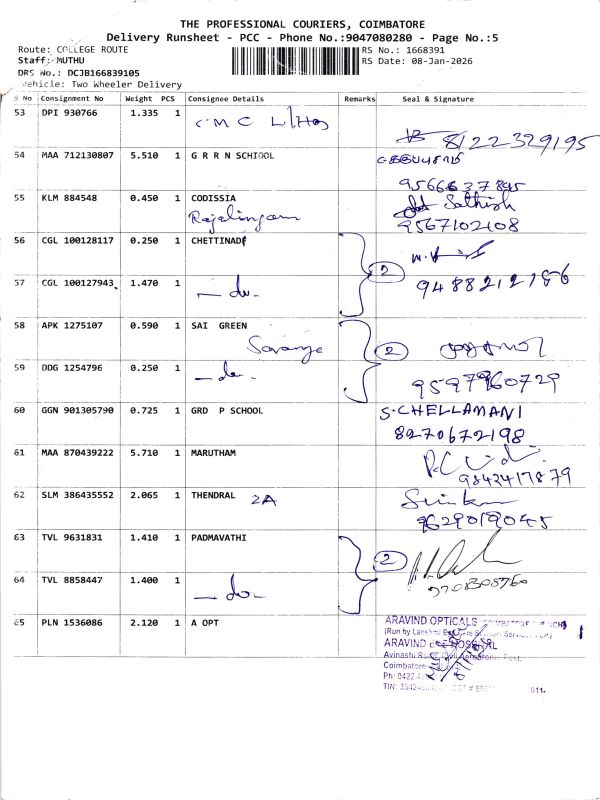 THE PROFESSIONAL COURIERS, COIMBATORE
Delivery Runsheet - PCC - Phone No.:9047080280 - Page No.:5
Route: COLLEGE ROUTE
RS No.: 1668391
Staff: MUTHU
RS Date: 08-Jan-2026
DRS No.: DCJB166839105
Vehicle: Two Wheeler Delivery
S No Consignment No Weight PCS Consignee Details Remarks Seal & Signature
53 DPI 930766 1.335 1 CMC
8122329195
54 MAA 712130807 5.510 1 G R R N SCHOOL
9566637845
55 KLM 884548 0.450 1 CODISSIA
Rajalingam Sathish
9567102108
56 CGL 100128117 0.250 1 CHETTINAD
2
57 CGL 100127943 1.470 1 - do -
9488212186
58 APK 1275107 0.590 1 SAI GREEN
Saranya 2
59 DDG 1254796 0.250 1 - do -
9597960729
60 GGN 901305790 0.725 1 GRD P SCHOOL S.CHELLAMANI
8270672198
61 MAA 870439222 5.710 1 MARUTHAM
9842417879
62 SLM 386435552 2.065 1 THENDRAL 2A
9629019045
63 TVL 9631831 1.410 1 PADMAVATHI 2
64 TVL 8858447 1.400 1 - do -
65 PLN 1536086 2.120 1 A OPT
ARAVIND OPTICALS
(Run by Lakshmi
ARAVIND EYE HOSPITAL
Avinashi Road, Civil Aerodrome Post,
Coimbatore
Ph: 0422
TIN: